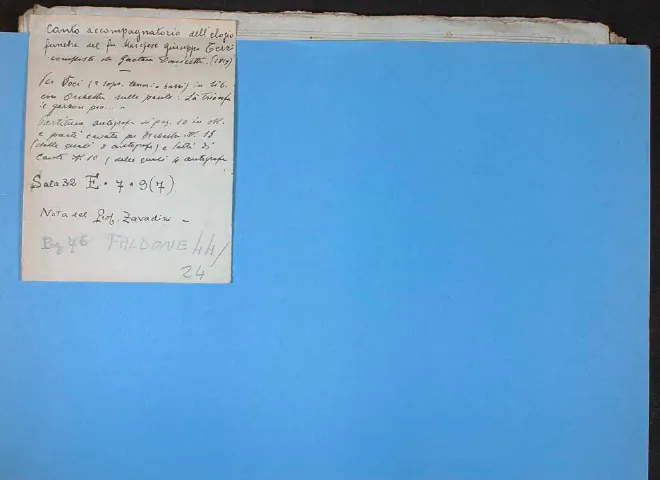 Canto accompagnatorio dell'elogio
funebre del fu Marchese Giuseppe Terzi
composto da Gaetano Donizetti. (1819)
Per Voci (2 sopr. tenori e bassi) in Sib.
con Orchestra sulle parole: La trionfa
il garzon pio... "
Partitura autografa di pag. 10 in ott.
e parti cavate per Orchestra N. 18
(delle quali 2 autografe) e parti di
Canto N. 10 (delle quali 4 autografe
Sala 32 E. 7. 9(7)
Nota del Prof. Zavadini -
76 FALDONE 44/
24